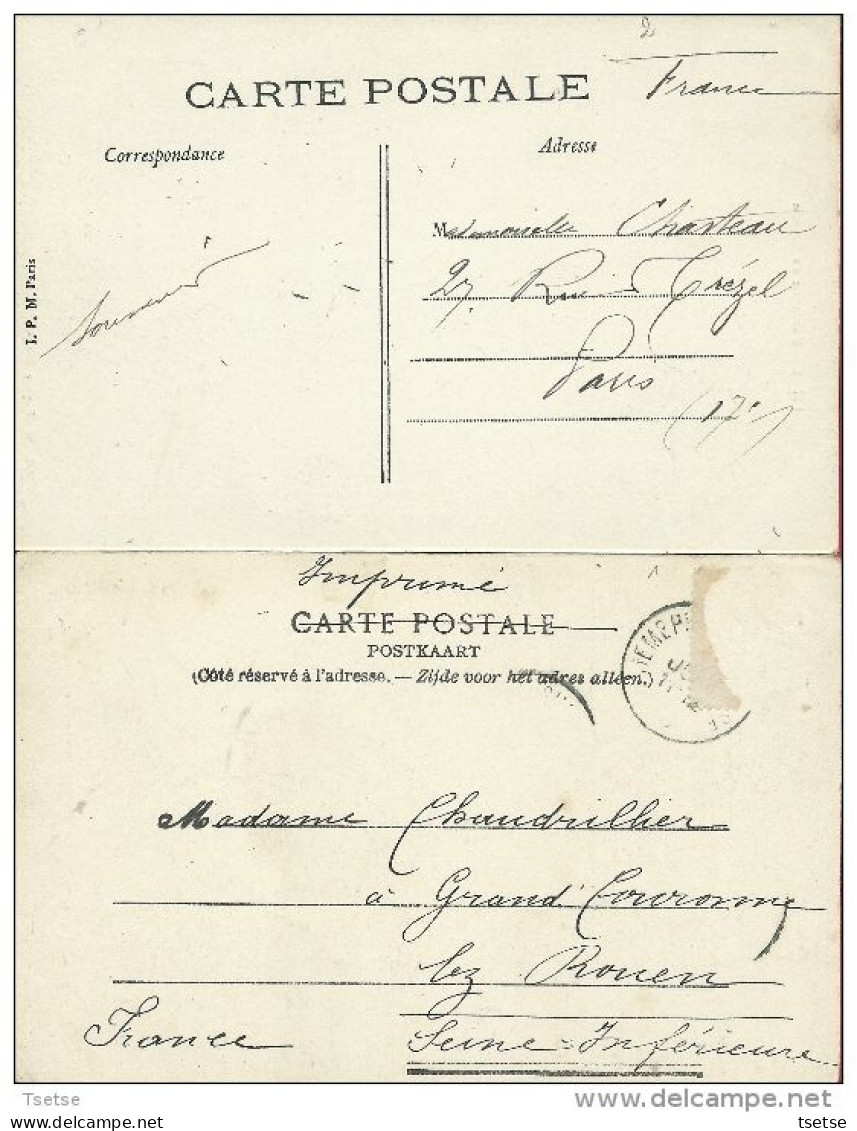 2
CARTE POSTALE
France
Correspondance
Adresse
Mademoiselle Chasteau
27 Rue Trézel
Paris
(17e)
Souvenir
I. P. M. Paris
Imprimé
CARTE POSTALE
POSTKAART
(Côté réservé à l'adresse. — Zijde voor het adres alleen.)
Madame Chaudrillier
à Grand' Couronne
lez Rouen
France Seine-Inférieure
Tsetse
delcampe.net
Tsetse